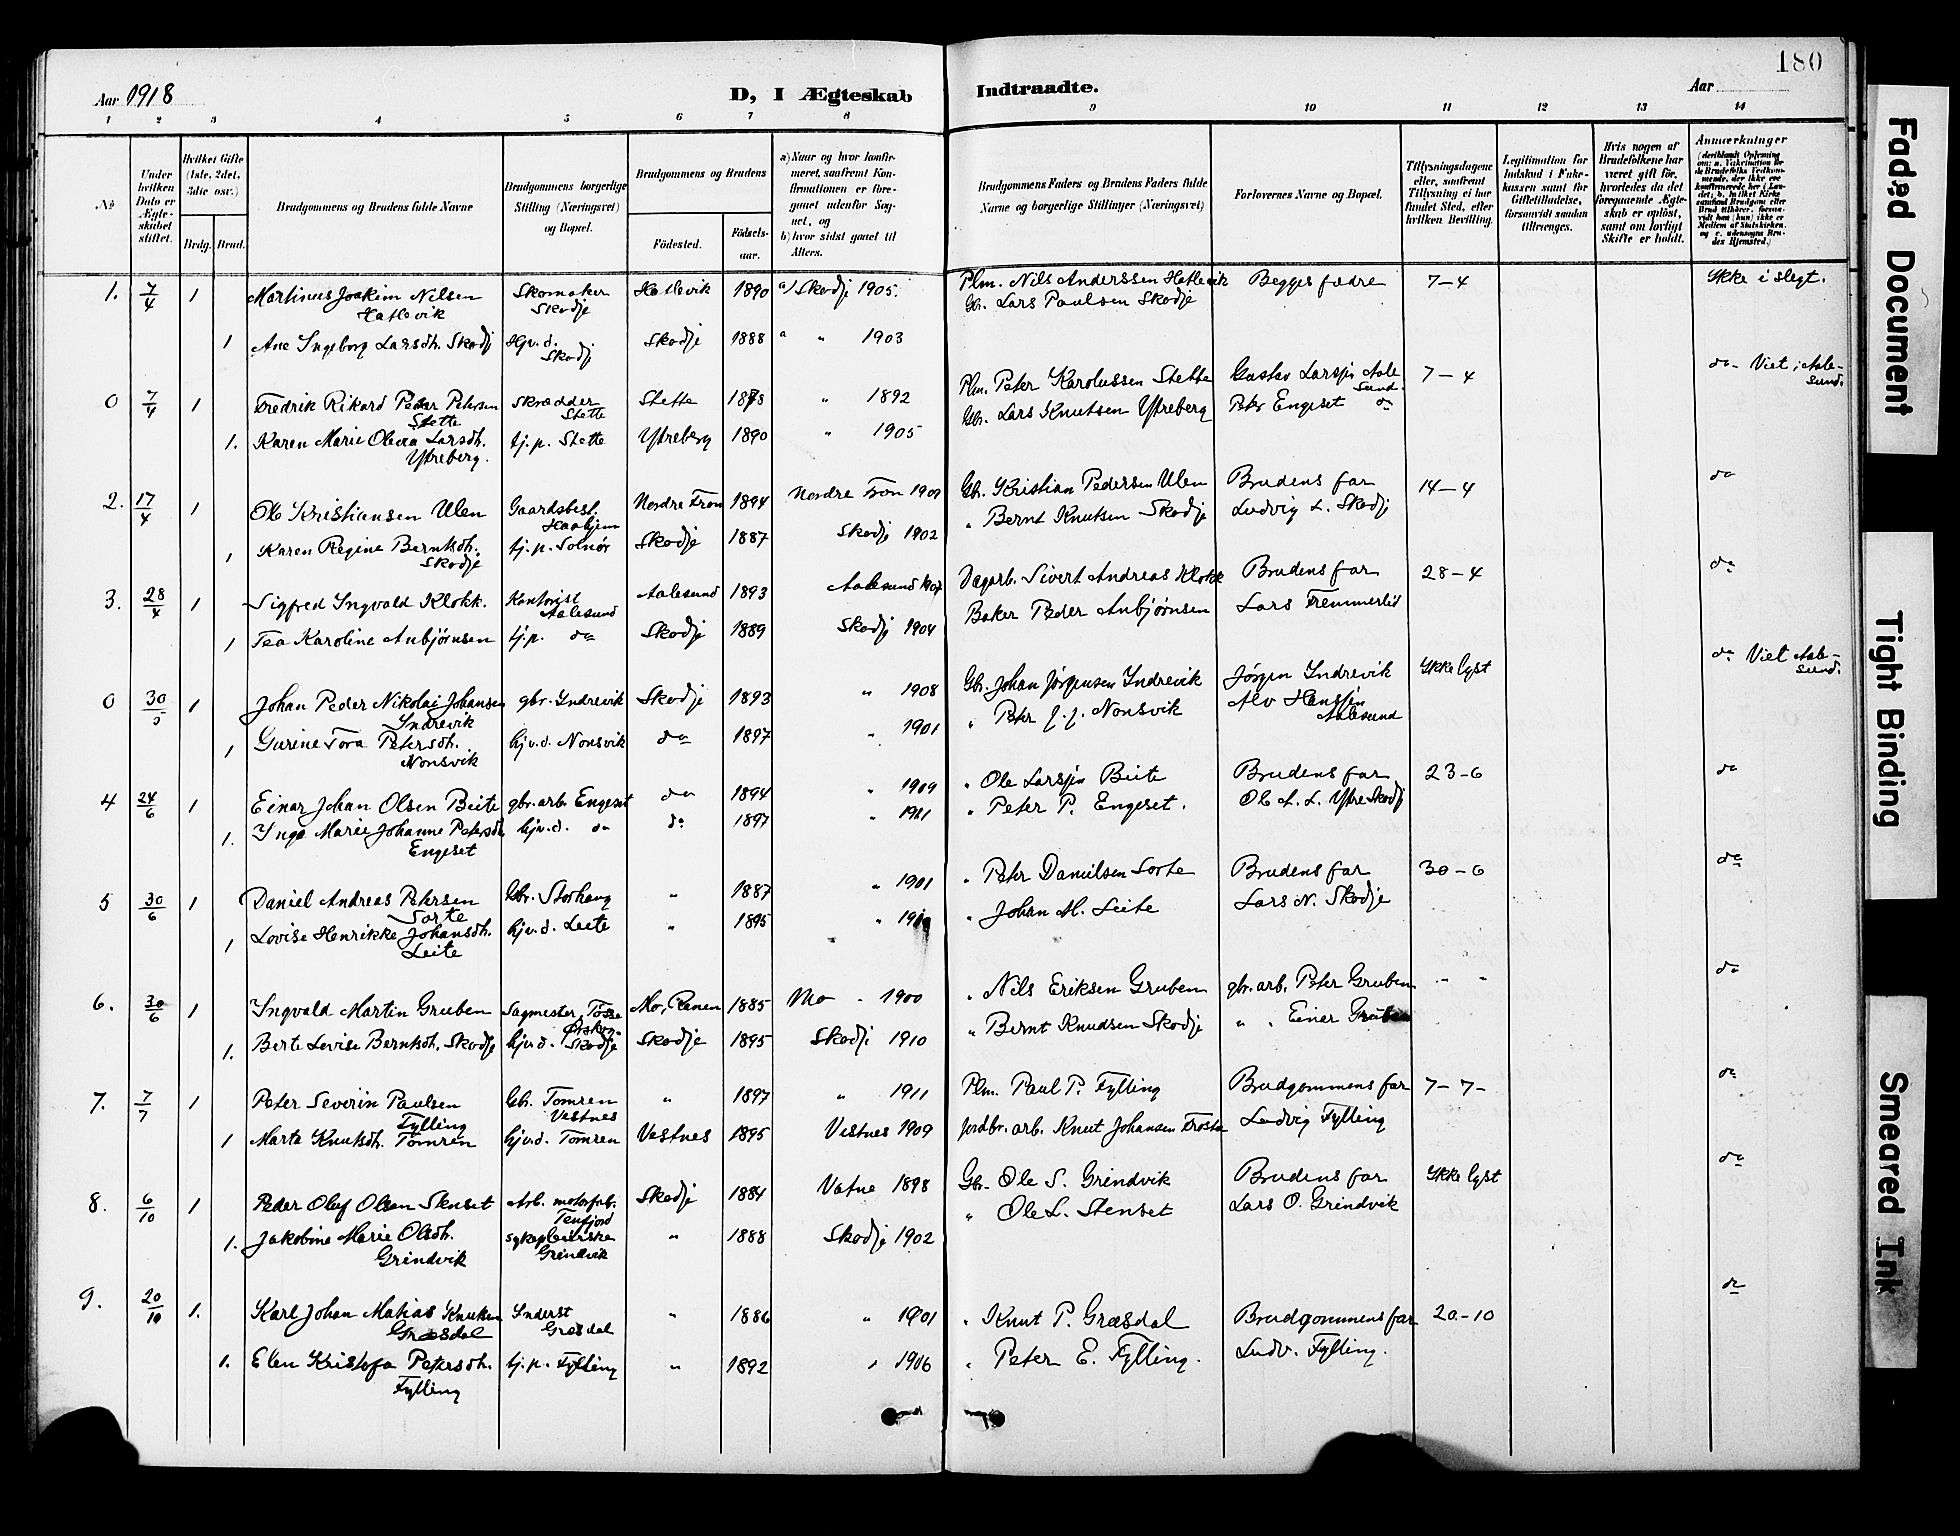 180
Aar 1918
D, I Ægteskab Indtraadte.
Aar
1 2 3 4 5 6 7 8 9 10 11 12 13 14
No
Under hvilken Dato er Ægteskabet stiftet.
Hvilket Gifte (1ste, 2det, 3die osv.)
Brdg. Brud.
Brudgommens og Brudens fulde Navne
Brudgommens borgerlige Stilling (Næringsvei) og Bopæl.
Brudgommens og Brudens
Födested.
Födselsaar.
a) Naar og hvor konfirmeret, saafremt Konfirmationen er foregaaet udenfor Sognet, og
b) hvor sidst gaaet til Alters.
Brudgommens Faders og Brudens Faders fulde Navne og borgerlige Stillinger (Næringsvei)
Forlovernes Navne og Bopæl.
Tillysningsdagene eller, saafremt Tillysning ei har fundet Sted, efter hvilken Bevilling.
Legitimation for Indskud i Enkekassen samt for Giftetilladelse, forsaavidt saadan tiltrænges.
Hvis nogen af Brudefolkene har været gift för, hvorledes da det foregaaende Ægteskab er oplöst, samt om lovligt Skifte er holdt.
Anmærkninger
1. 7/4 1 Martinus Joakim Nilsen Skomaker Hatlevik 1890 a) Skodje 1905. Plm. Nils Anderssen Hatlevik Begges fædre 7-4 Ikke i slegt.
Hatlevik Skodje Gbr. Lars Paulsen Skodje
1 Ane Ingeborg Larsdtr. Skodj Hjv.d. Skodje 1888 a „ 1903
Skodj
0 7/4 1 Fredrik Rikard Peder Petersen Skrædder Stette 1878 „ 1892 Plm. Peter Karolussen Stette Gustav Larsen Aalesund. 7-4 do- Viet i Aalesund.
Stette Stette Gbr. Lars Knutsen Ytreberg Petr Engeset do
1. Karen Marie Olava Larsdtr. tj.p. Stette Ytreberg 1890 „ 1905
Ytreberg.
2. 17/4 1 Ole Kristiansen Ulen Gaardsbest. Nordre Fron 1894 Nordre Fron 1909 Gbr. Kristian Pedersen Ulen Brudens far 14-4 do
Haahjem „ Bernt Knutsen Skodje Ludvig L. Skodj
1 Karen Regine Berntsdtr. tj.p. Solnør Skodje 1887 Skodj 1902
Skodje
3. 28/4 1 Sigfred Ingvald Klokk. Kontorist Aalesund 1893 Aalesund 1907 Dagarb. Sivert Andreas Klokk Brudens far 28-4 do
Aalesund Baker Peder Anbjørnsen Lars Fremmerlid
1 Tea Karoline Anbjørnsen tj.p. do Skodje 1889 Skodj 1904
0 30/5 1 Johan Peder Nikolai Johansen gbr. Indrevik Skodje 1893 „ 1908 Gbr. Johan Jørgensen Indrevik Jørgen Indrevik Ikke lyst do Viet Aalesund.
Indrevik „ Petr J. J. Nonsvik Alv Hansen
1 Gurine Tora Petersdtr. hjv.d. Nonsvik do 1897 „ 1901 Aalesund
Nonsvik
4 24/6 1 Einar Johan Olsen Beite gbr.arb. Engeset do 1894 „ 1909 „ Ole Larsen Beite Brudens far 23-6 do
1. Inga Marie Johanne Petersdtr hjv.d. do do 1897 „ 1911 „ Peter P. Engeset. Ole L. L. Ytre Skodj
Engeset
5 30/6 1 Daniel Andreas Petersen Gbr. Storhaug „ 1887 „ 1901 „ Petr Danielsen Sorte Brudens far 30-6 do
Sorte
1 Lovise Henrikke Johansdtr. hjv.d. Leite „ 1895 „ „ Johan M. Leite Lars N. Skodje
Leite
6. 30/6 1 Ingvald Martin Gruben Sagmester Tøsse Mo, Ranen 1885 Mo „ 1900 „ Nils Eriksen Gruben gbr.arb. Peter Gruben „ „ do
Ørskog.
1. Berte Lovise Berntsdtr. Skodje hjv.d. Skodje Skodje 1895 Skodj 1910 „ Bernt Knudsen Skodje „ „ Einar Gruben
7. 7/7 1 Peter Severin Paulsen Gbr. Tomren „ 1897 „ 1911 Plm. Paul P. Fylling Brudgommens far 7-7- do
Fylling Vestnes
1 Marta Knutsdtr. Tomren hjv.d. Tomren Vestnes 1895 Vestnes 1909 Jordbr. arb. Knut Johansen Frostad Ludvig Fylling
8. 6/10 1 Peder Olaf Olsen Stenset Arb. motorfab. Skodje 1884 Vatne 1898 Gbr. Ole S. Grindvik Brudens far Ikke lyst do
Tenfjord „ Ole L. Stenset Lars O. Grindvik
1. Jakobine Marie Olsdtr. sykepleierske „ 1888 Skodje 1902
Grindvik Grindvik
9. 20/10 1. Karl Johan Matias Knutsen Inderst „ 1886 „ 1901 „ Knut P. Græsdal Brudgommens far 20-10 do
Græsdal Græsdal
1. Elen Kristofa Petersdtr. tj.p. Fylling „ 1892 „ 1906 „ Peter E. Fylling. Ludv. Fylling.
Fylling
Faded Document
Tight Binding
Smeared Ink